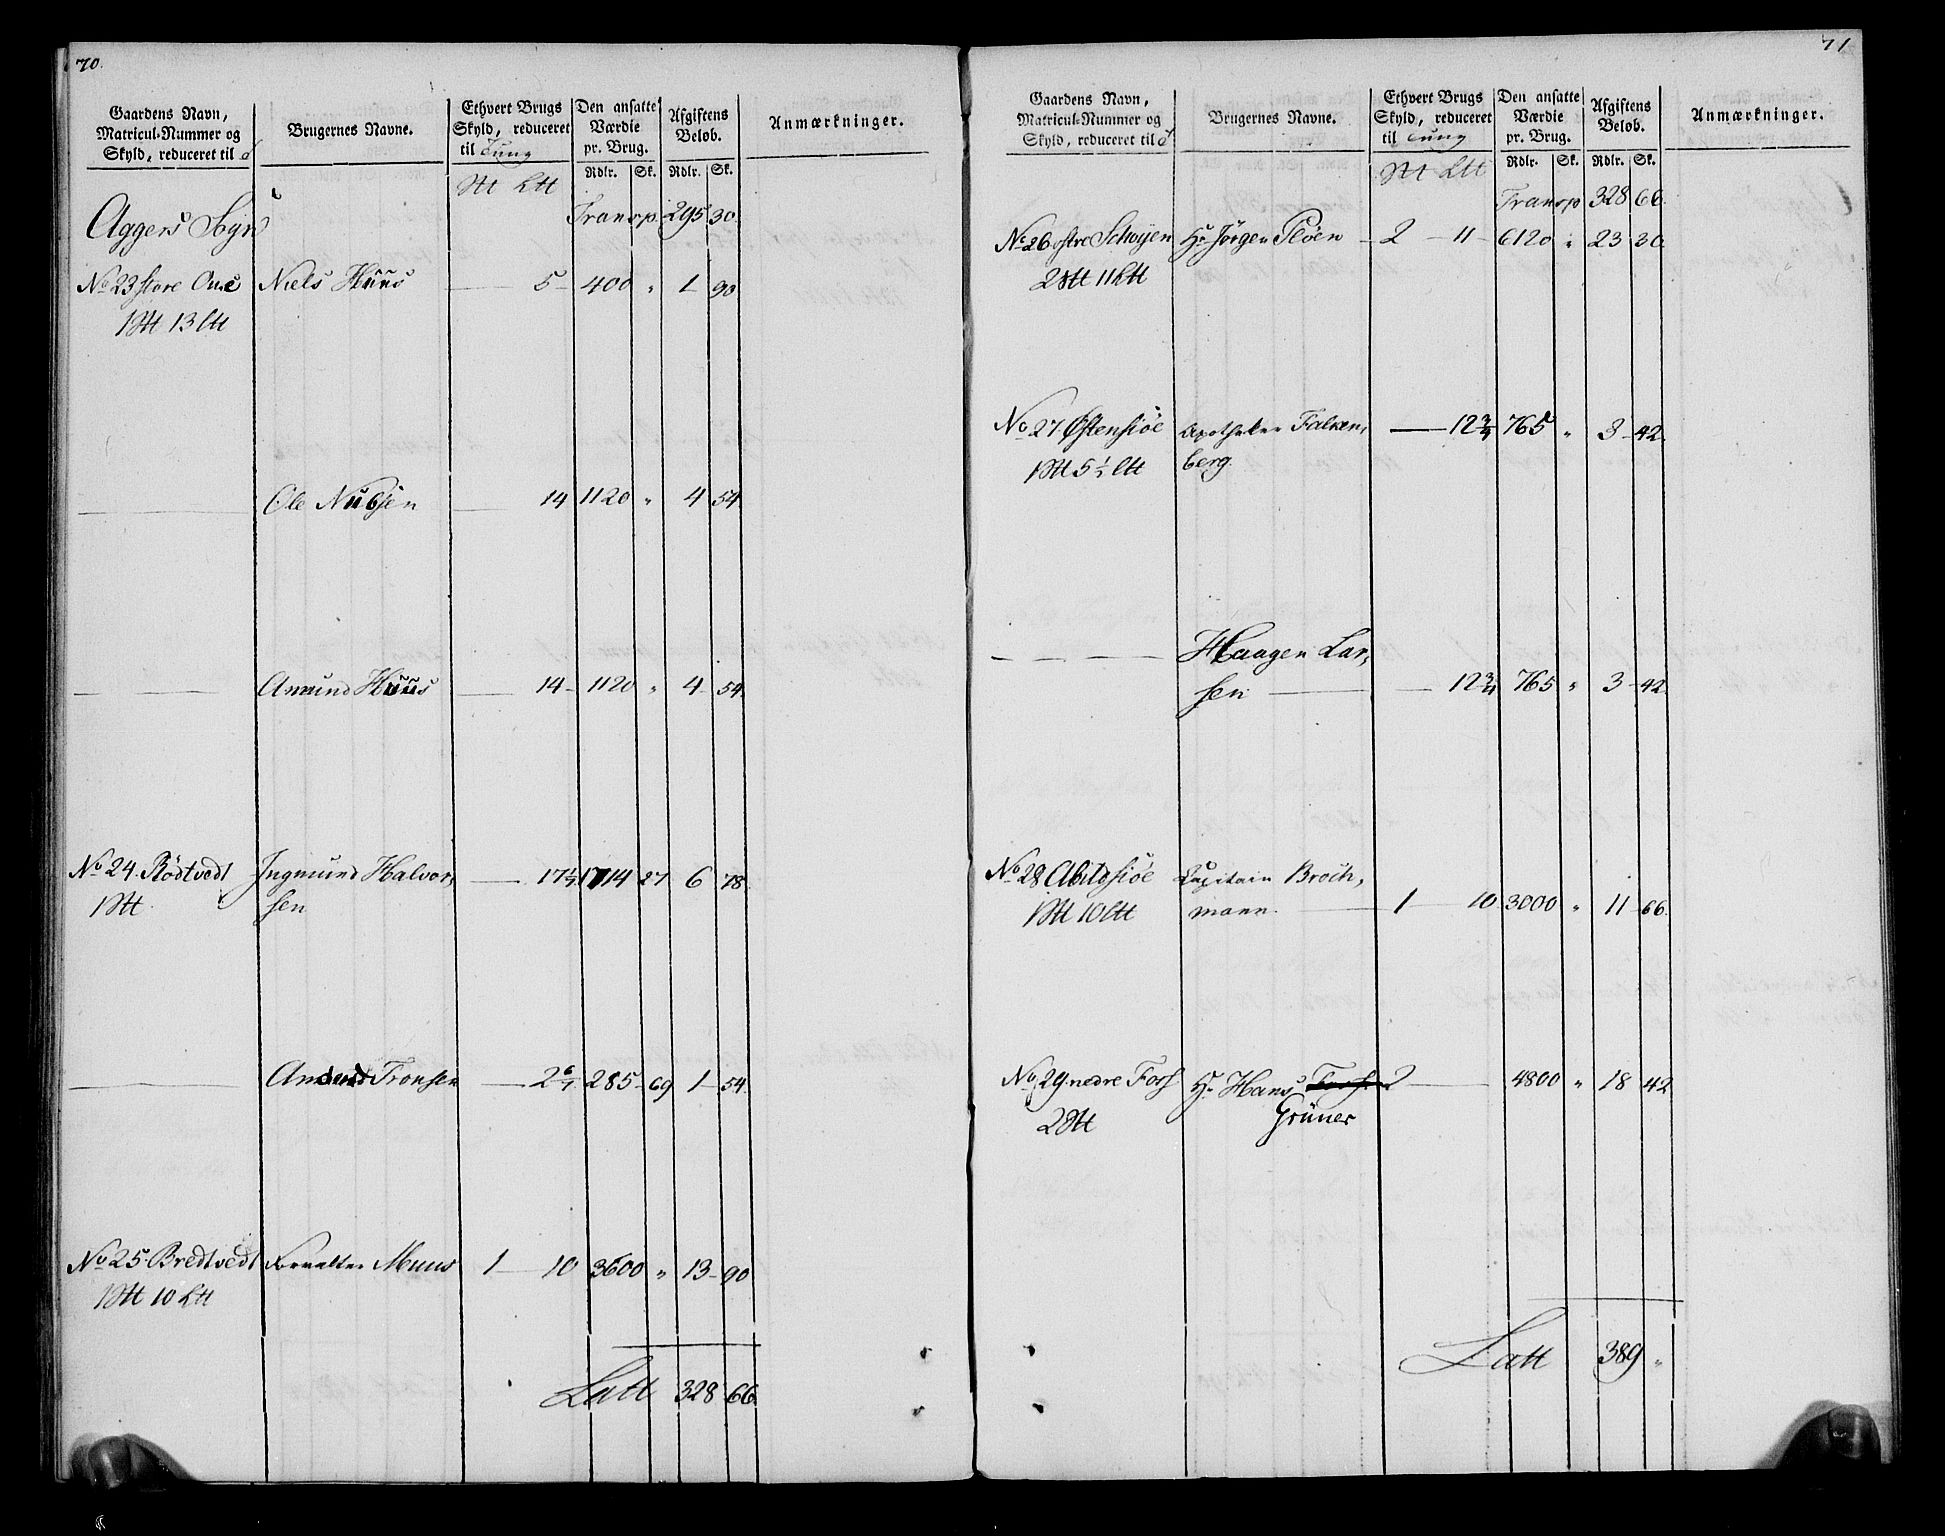 70.
Gaardens Navn,
Matricul-Nummer og
Skyld, reduceret til
Brugernes Navne.
Ethvert Brugs
Skyld, reduceret
til Tung
Den ansatte
Værdie
pr. Brug.
Rdlr. Sk.
Afgiftens
Beløb.
Rdlr. Sk.
Anmærkninger.
Transp. 295 30.
Aggers
No 23 store Niels Huus 5 400 " 1 90
1 13
Ole Nielsen 14 1120 " 4 54
Amund Huus 14 1120 " 4 54
No 24. Rödtvedt Ingmund Halvor, 17 1/7 1714 27 6 78.
1 sen
Amund Tronsen 2 6/7 285 69 1 54.
No 25. Bredtvedt Forvalter Muus 1 10 3600 " 13 90
1 10
Latt 328 66.
71
Gaardens Navn,
Matricul-Nummer og
Skyld, reduceret til
Brugernes Navne.
Ethvert Brugs
Skyld, reduceret
til Tung
Den ansatte
Værdie
pr. Brug.
Rdlr. Sk.
Afgiftens
Beløb.
Rdlr. Sk.
Anmærkninger.
Transp 328 66.
No 26 østre Schøyen Hr Jörgen Pløen 2 11 6120 " 23 30.
2 11
No 27. Østensiöe Apotheker Falken, 12 3/4 765 " 3 42.
1 5 1/2 berg.
Haagen Lar,
sen 12 3/4 765 " 3 42.
No 28 Abildsiöe Capitain Broch,
1 10 mann. 1 10 3000 " 11 66.
No 29. nedre Foss Hr Hans 2 4800 " 18 42
2 Grüner
Latt 389 "